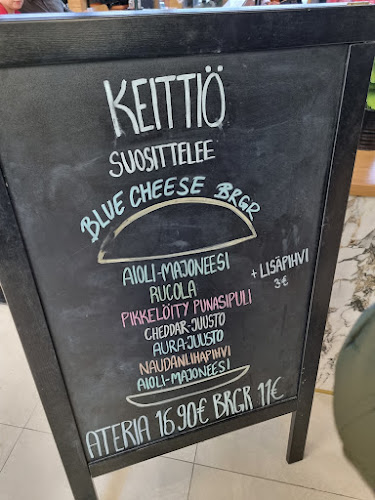 KEITTIÖ
SUOSITTELEE
BLUE CHEESE BRGR
AIOLI-MAJONEESI
RUCOLA
PIKKELÖITY PUNASIPULI
CHEDDAR-JUUSTO
AURA-JUUSTO
NAUDANLIHAPIHVI
AIOLI-MAJONEESI
+ LISÄPIHVI
3€
ATERIA 16.90€ BRGR 11€